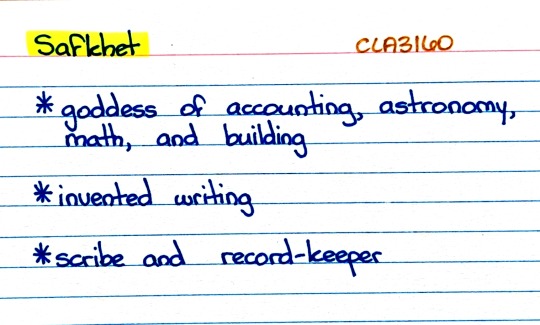 Safkhet CLA3160
* goddess of accounting, astronomy,
math, and building
* invented writing
* scribe and record-keeper